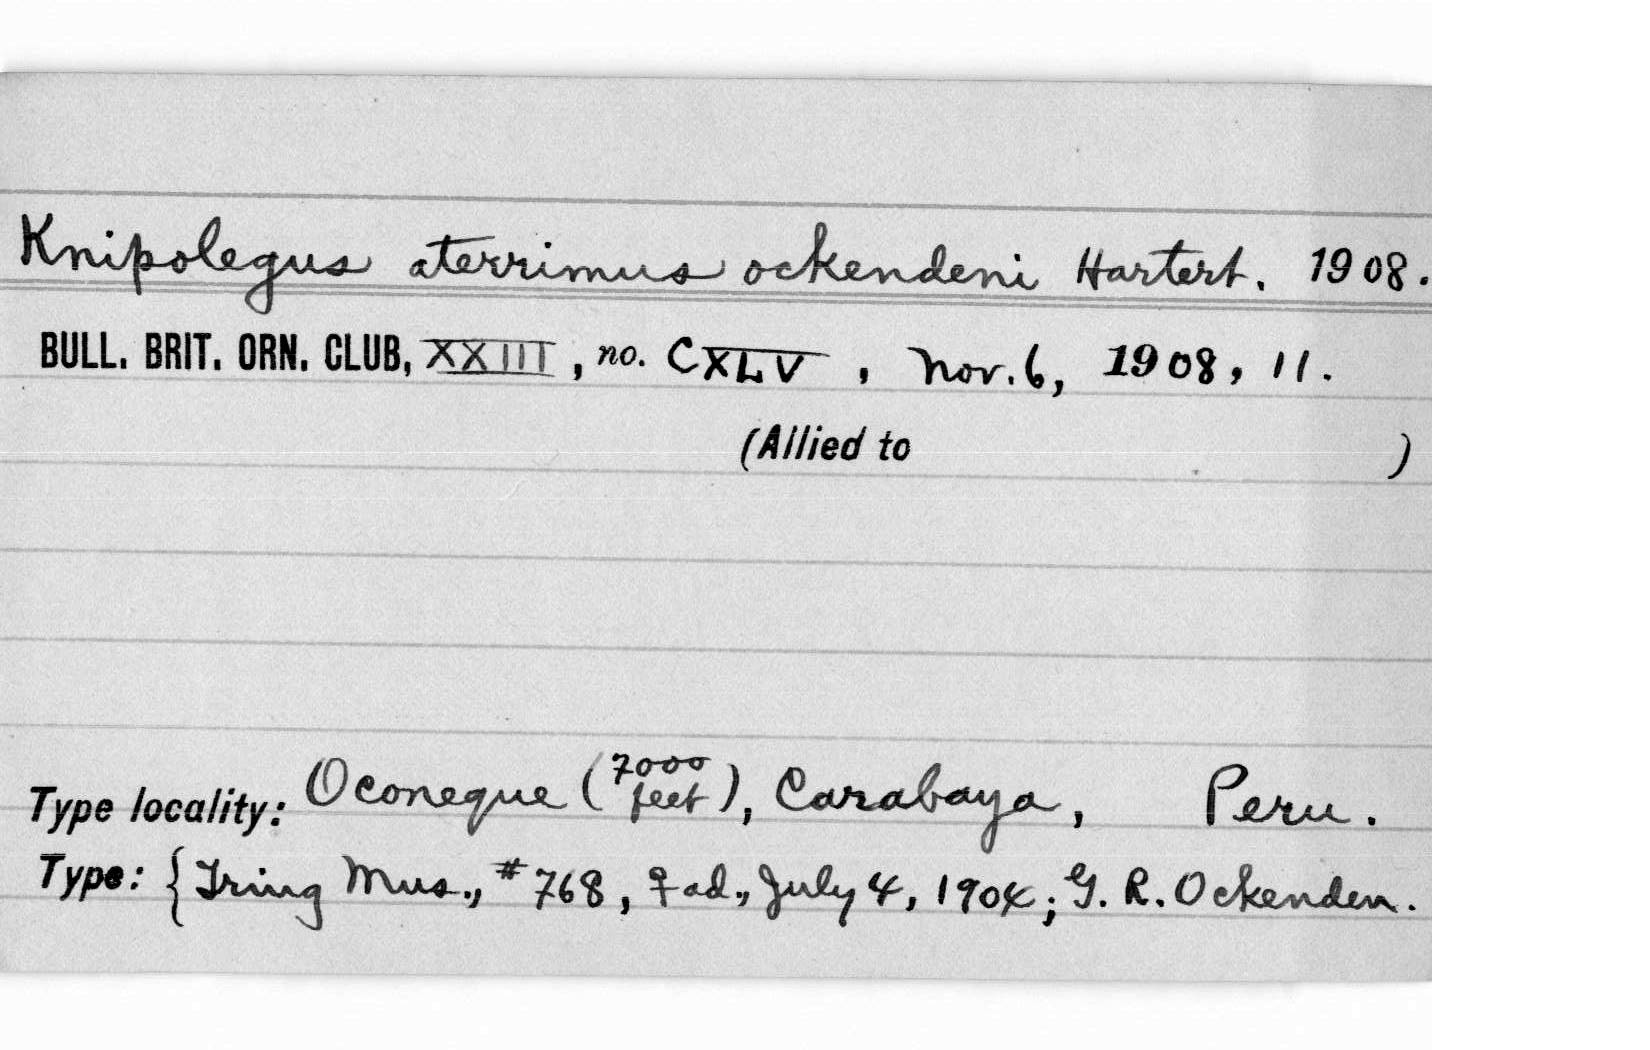 Knipolegus aterrimus ockendeni Hartert. 1908.
BULL. BRIT. ORN. CLUB, XXIII, no. CXLV, Nov. 6, 1908, 11.
(Allied to )
Type locality: Oconeque (7000 feet), Carabaya, Peru.
Type: {Tring Mus., #768, ♀ ad., July 4, 1904; G. R. Ockenden.